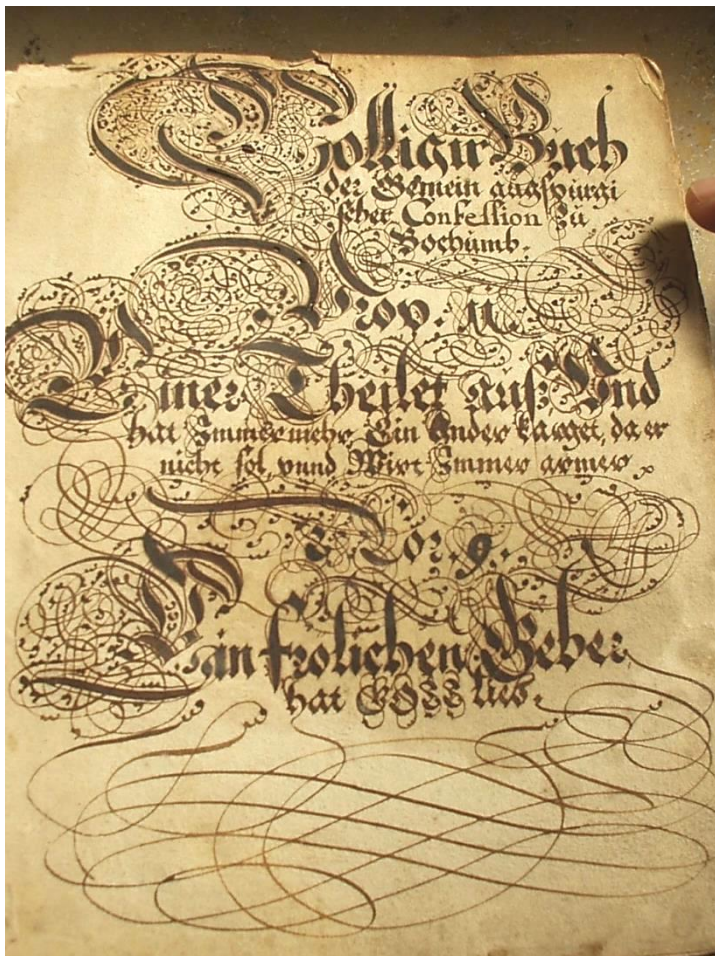 Colligir Buch
der Gemein augspurgi
scher Confession zu
Bochumb.
Prov. 11.
Einer Theilet auß Vnd
hat Immer mehr, Ein Ander karget, da er
nicht sol, vnnd Wirt Immer armer
2 Cor. 9.
Ein frolichen Geber
hat GOTT lieb.